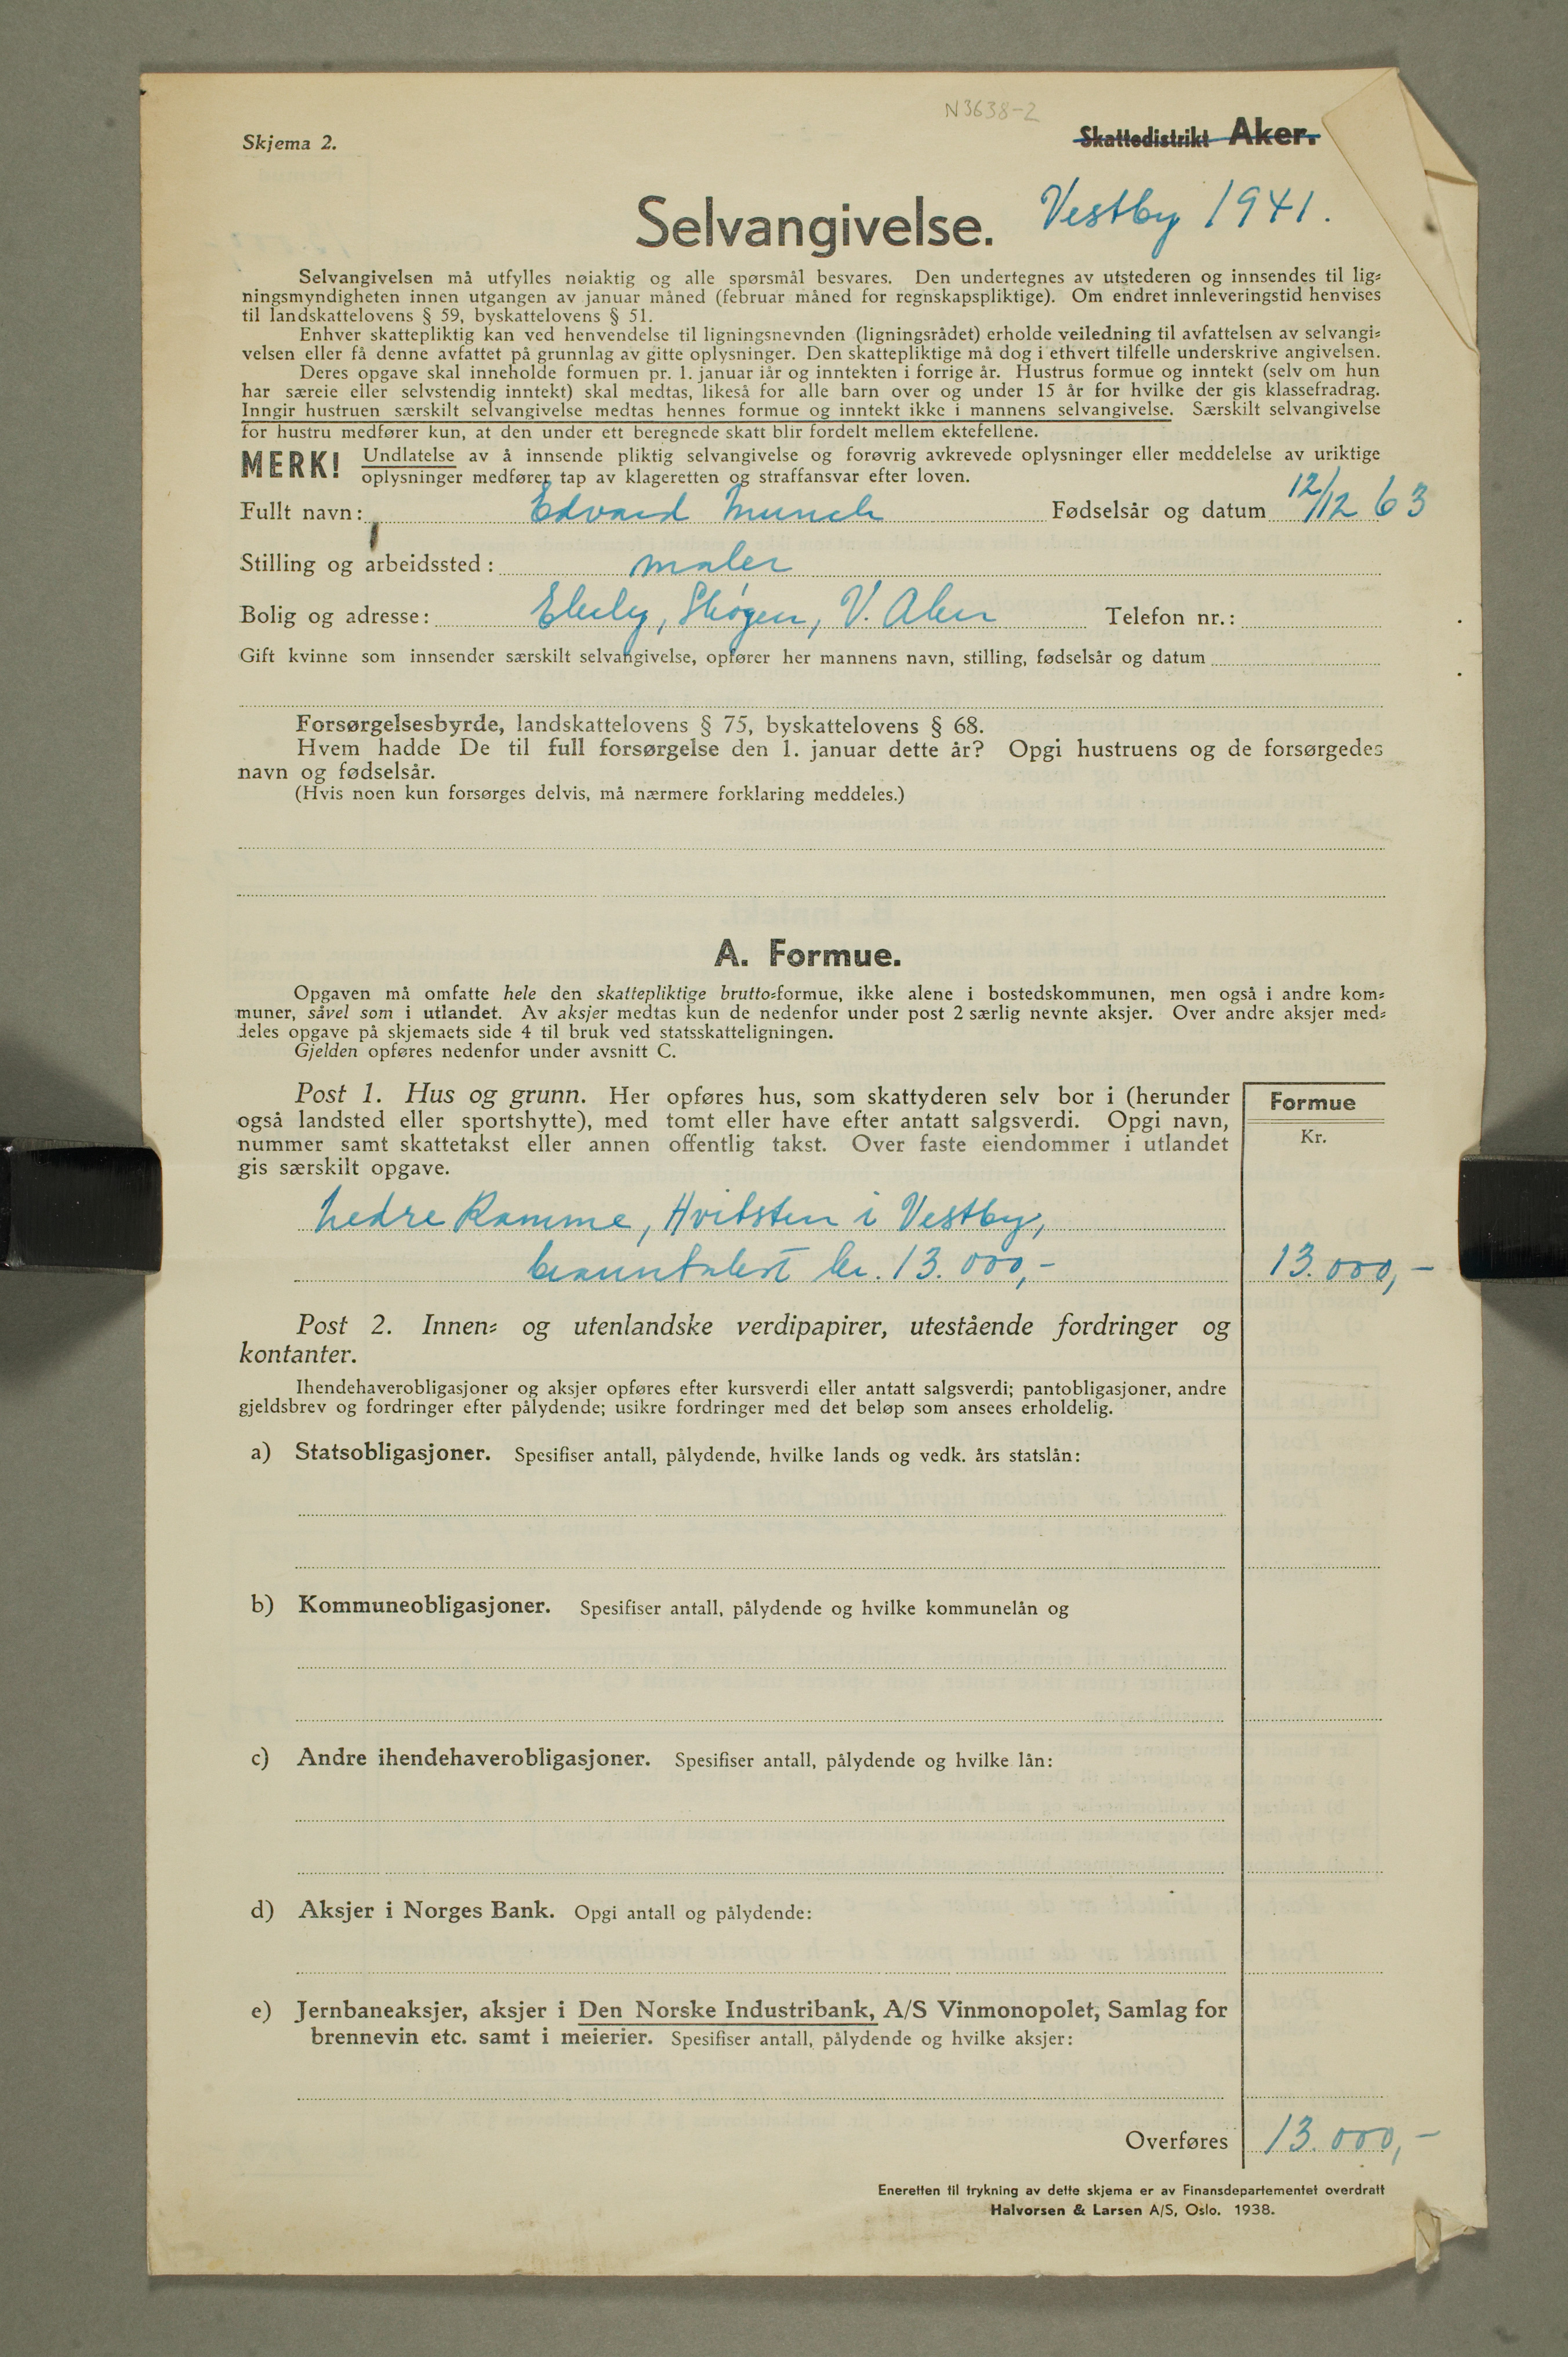 N3638-2
Skjema 2.
Skattedistrikt Aker.
Selvangivelse.
Vestby 1941.
Selvangivelsen må utfylles nøiaktig og alle spørsmål besvares. Den undertegnes av utstederen og innsendes til lig=
ningsmyndigheten innen utgangen av januar måned (februar måned for regnskapspliktige). Om endret innleveringstid henvises
til landskattelovens § 59, byskattelovens § 51.
Enhver skattepliktig kan ved henvendelse til ligningsnevnden (ligningsrådet) erholde veiledning til avfattelsen av selvangi=
velsen eller få denne avfattet på grunnlag av gitte oplysninger. Den skattepliktige må dog i ethvert tilfelle underskrive angivelsen.
Deres opgave skal inneholde formuen pr. 1. januar iår og inntekten i forrige år. Hustrus formue og inntekt (selv om hun
har særeie eller selvstendig inntekt) skal medtas, likeså for alle barn over og under 15 år for hvilke der gis klassefradrag.
Inngir hustruen særskilt selvangivelse medtas hennes formue og inntekt ikke i mannens selvangivelse. Særskilt selvangivelse
for hustru medfører kun, at den under ett beregnede skatt blir fordelt mellem ektefellene.
MERK! Undlatelse av å innsende pliktig selvangivelse og forøvrig avkrevede oplysninger eller meddelelse av uriktige
oplysninger medfører tap av klageretten og straffansvar efter loven.
Fullt navn: Edvard Munch Fødselsår og datum 12/12 63
Stilling og arbeidssted: maler
Bolig og adresse: Ekely, Skøyen, V. Aker Telefon nr.:
Gift kvinne som innsender særskilt selvangivelse, opfører her mannens navn, stilling, fødselsår og datum
Forsørgelsesbyrde, landskattelovens § 75, byskattelovens § 68.
Hvem hadde De til full forsørgelse den 1. januar dette år? Opgi hustruens og de forsørgedes
navn og fødselsår.
(Hvis noen kun forsørges delvis, må nærmere forklaring meddeles.)
A. Formue.
Opgaven må omfatte hele den skattepliktige brutto=formue, ikke alene i bostedskommunen, men også i andre kom=
muner, såvel som i utlandet. Av aksjer medtas kun de nedenfor under post 2 særlig nevnte aksjer. Over andre aksjer med=
deles opgave på skjemaets side 4 til bruk ved statsskatteligningen.
Gjelden opføres nedenfor under avsnitt C.
Post 1. Hus og grunn. Her opføres hus, som skattyderen selv bor i (herunder
også landsted eller sportshytte), med tomt eller have efter antatt salgsverdi. Opgi navn,
nummer samt skattetakst eller annen offentlig takst. Over faste eiendommer i utlandet
gis særskilt opgave.
Formue
Kr.
Nedre Ramme, Hvitsten i Vestby,
branntakst kr. 13.000,- 13.000,-
Post 2. Innen= og utenlandske verdipapirer, utestående fordringer og
kontanter.
Ihendehaverobligasjoner og aksjer opføres efter kursverdi eller antatt salgsverdi; pantobligasjoner, andre
gjeldsbrev og fordringer efter pålydende; usikre fordringer med det beløp som ansees erholdelig.
a) Statsobligasjoner. Spesifiser antall, pålydende, hvilke lands og vedk. års statslån:
b) Kommuneobligasjoner. Spesifiser antall, pålydende og hvilke kommunelån og
c) Andre ihendehaverobligasjoner. Spesifiser antall, pålydende og hvilke lån:
d) Aksjer i Norges Bank. Opgi antall og pålydende:
e) Jernbaneaksjer, aksjer i Den Norske Industribank, A/S Vinmonopolet, Samlag for
brennevin etc. samt i meierier. Spesifiser antall, pålydende og hvilke aksjer:
Overføres 13.000,-
Eneretten til trykning av dette skjema er av Finansdepartementet overdratt
Halvorsen & Larsen A/S, Oslo. 1938.